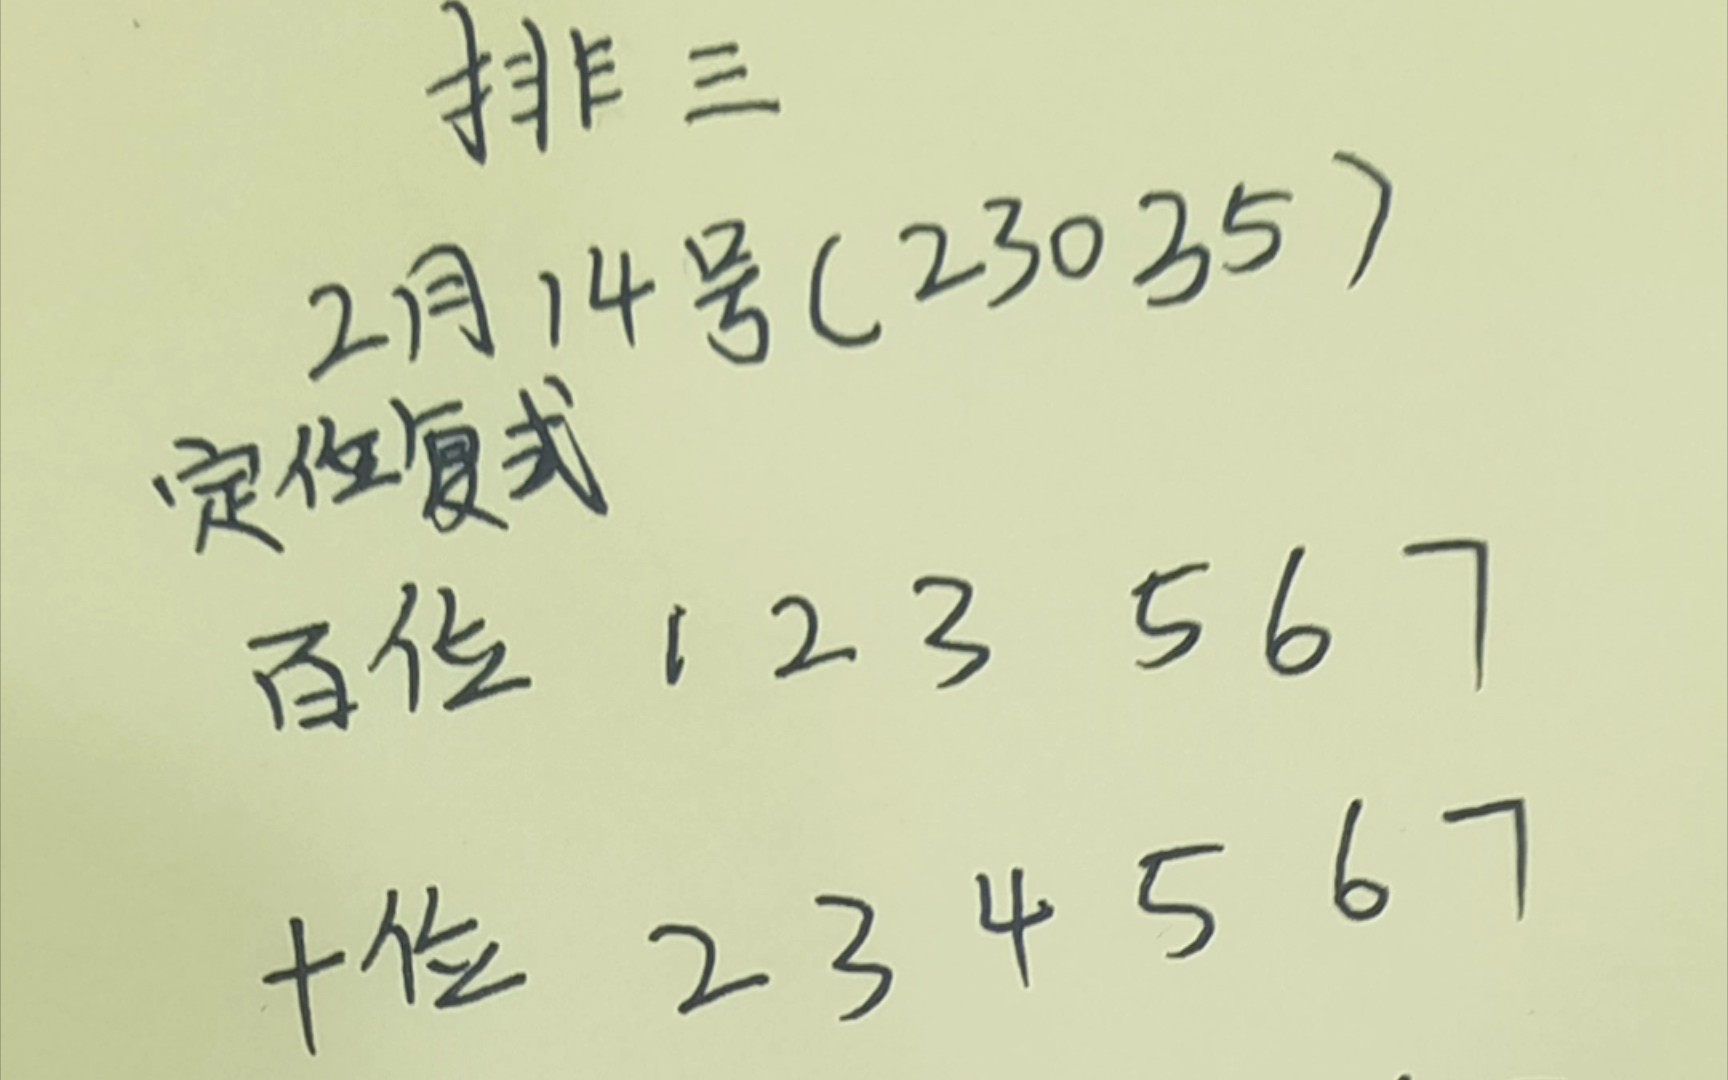 排三
2月14号(23035)
定位复式
百位 1 2 3 5 6 7
十位 2 3 4 5 6 7